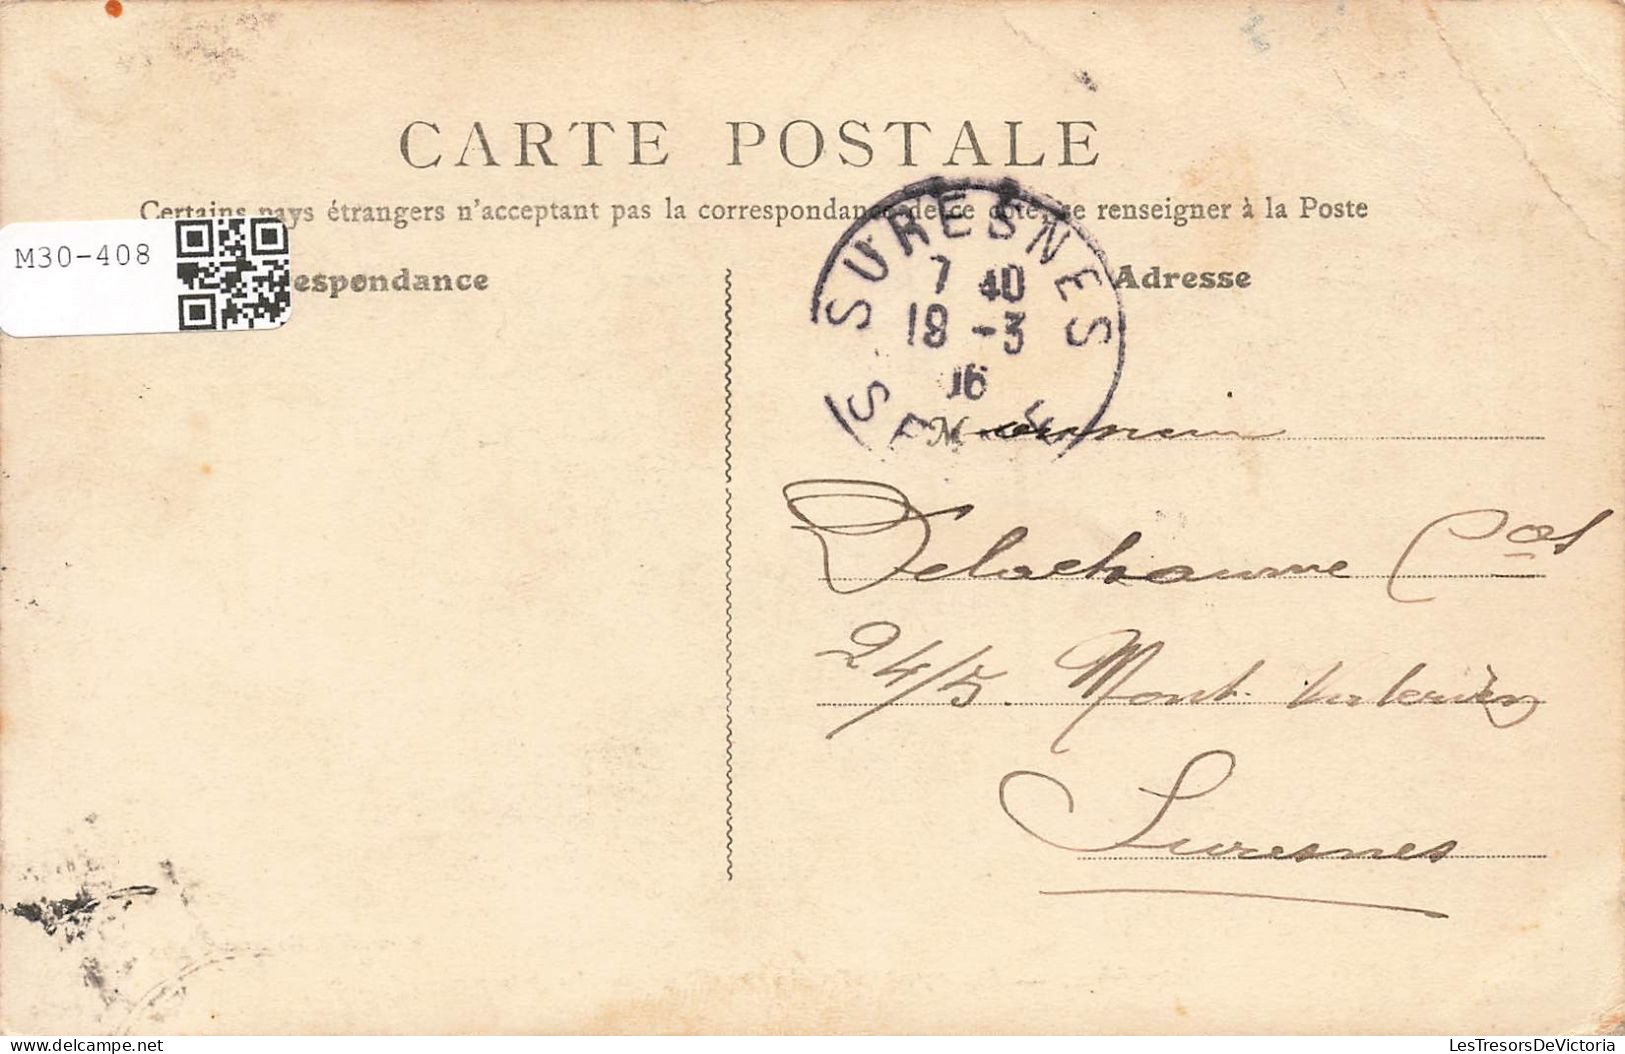 CARTE POSTALE
Certains pays étrangers n'acceptant pas la correspondance de ce côté, se renseigner à la Poste
M30-408
espondance
Adresse
SURESNES
7 40
18 -3
06
SEINE
M
Delachaume
24/5. Mont Valérien
Suresnes
LesTresorsDeVictoria